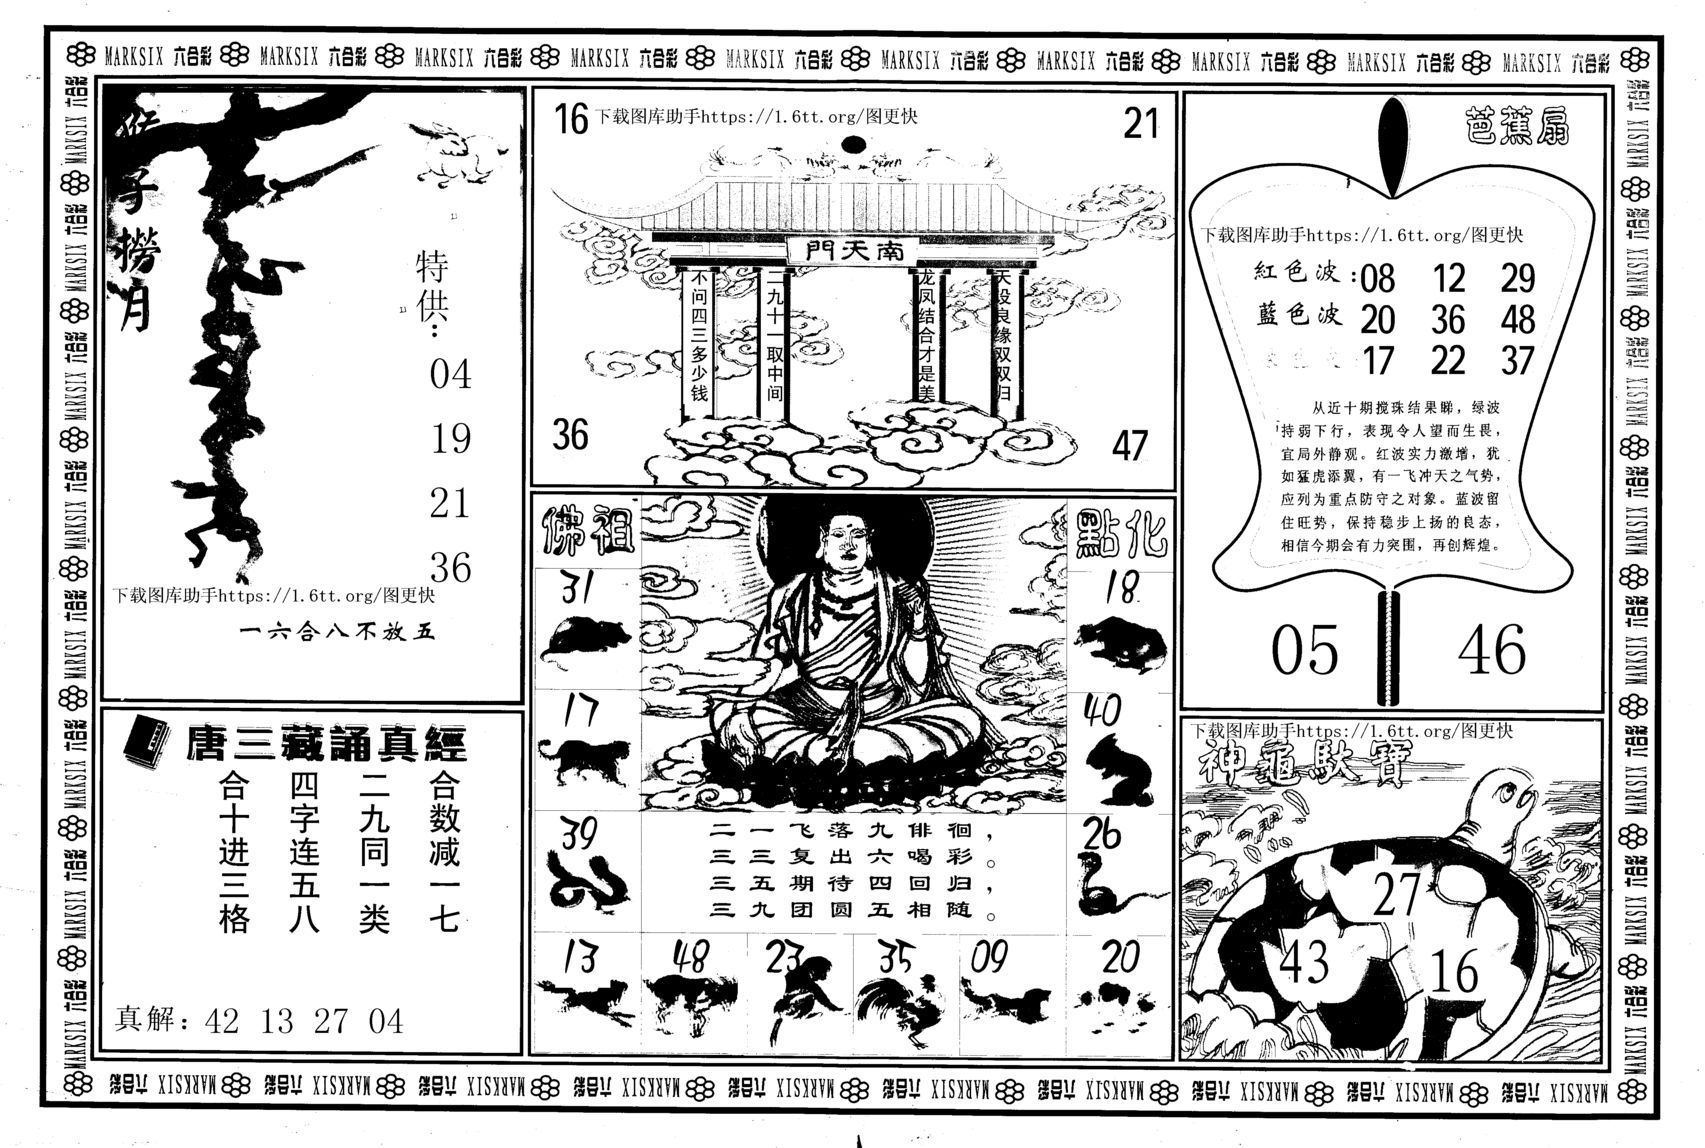 MARKSIX 六合彩 MARKSIX 六合彩 MARKSIX 六合彩 MARKSIX 六合彩 MARKSIX 六合彩 MARKSIX 六合彩 MARKSIX 六合彩 MARKSIX 六合彩 MARKSIX 六合彩 MARKSIX 六合彩
猴子撈月
特供:
04
19
21
36
下载图库助手https://1.6tt.org/图更快
一六合八不放五
唐三藏誦真經
合数减一七
二九同一类
四字连五八
合十进三格
真解: 42 13 27 04
16 下载图库助手https://1.6tt.org/图更快 21
南天門
天设良缘双双归
龙凤结合才是美
二九十一取中间
不问四三多少钱
36 47
佛祖 點化
31 18
17 40
39 26
二一飞落九徘徊，
三三复出六喝彩。
三五期待四回归，
三九团圆五相随。
13 48 23 35 09 20
芭蕉扇
下载图库助手https://1.6tt.org/图更快
紅色波:08 12 29
藍色波 20 36 48
17 22 37
从近十期搅珠结果睇，绿波
持弱下行，表现令人望而生畏，
宜局外静观。红波实力激增，犹
如猛虎添翼，有一飞冲天之气势，
应列为重点防守之对象。蓝波留
住旺势，保持稳步上扬的良态，
相信今期会有力突围，再创辉煌。
05 46
下载图库助手https://1.6tt.org/图更快
神龜馱寶
27
43 16
MARKSIX 六合彩 MARKSIX 六合彩 MARKSIX 六合彩 MARKSIX 六合彩 MARKSIX 六合彩 MARKSIX 六合彩 MARKSIX 六合彩 MARKSIX 六合彩 MARKSIX 六合彩 MARKSIX 六合彩